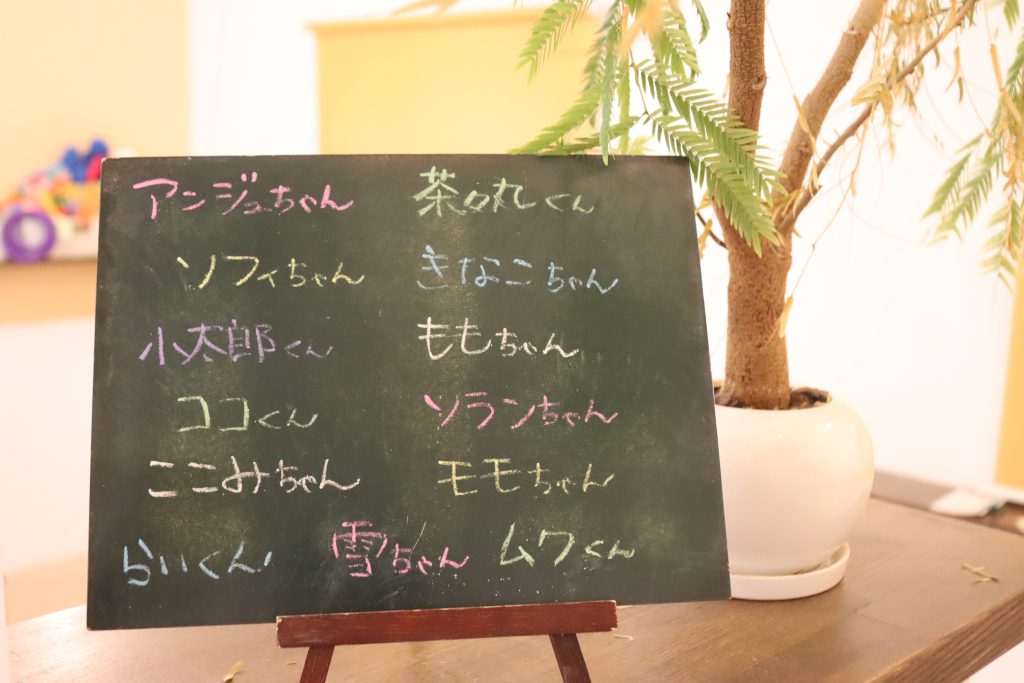 アンジュちゃん 茶々丸くん
ソフィちゃん きなこちゃん
小太郎くん ももちゃん
ココくん ソランちゃん
ここみちゃん モモちゃん
らいくん 雪ちゃん ムクくん